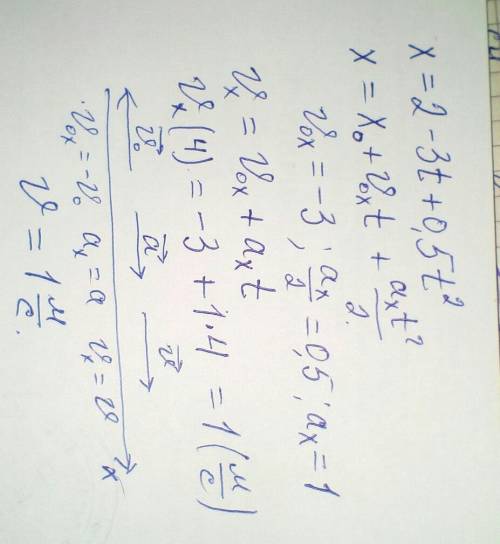 x = 2 - 3t + 0,5t²
x = x₀ + v₀ₓt + aₓt²/2
v₀ₓ = -3; aₓ/2 = 0,5; aₓ = 1
vₓ = v₀ₓ + aₓt
vₓ(4) = -3 + 1·4 = 1 (м/с)
v⃗₀ a⃗ v⃗
x
v₀ₓ = -v₀ aₓ = a vₓ = v
v = 1 м/с.